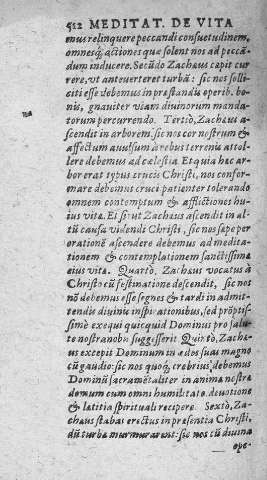 512 MEDITAT. DE VITA
mus relinquere peccandi consuetudinem,
omnesq́; actiones quæ solent nos ad peccã-
dum inducere. Secũdo Zachæus cœpit cur
rere, vt anteuerteret turbã: sic nos solli-
citi esse debemus in præstandis operib. bo-
nis, gnauiter viam diuinorum manda-
torum percurrendo. Tertiò, Zachæus a-
scendit in arborem, sic nos cor nostrum &
affectum auulsum à rebus terrenis attol-
lere debemus ad cælestia. Et quia hæc ar-
bor erat typus crucis Christi, nos confor-
mare debemus cruci patienter tolerando
omnem contemptum & afflictiones hu-
ius vitæ. Et sicut Zachæus ascendit in al-
tũ causa videndi Christi, sic nos sæpe per
orationẽ ascendere debemus ad medita-
tionem & contemplationem sanctissimæ
eius vitæ. Quartò, Zachæus vocatus à
Christo cũ festinatione descendit, sic nos
nõ debemus esse segnes & tardi in admit-
tendis diuinis inspirationibus, sed prõptis-
simè exequi quicquid Dominus pro salu-
te nostra nobis suggesserit. Quintò, Zach-
æus excepit Dominum in ædes suas magno
cũ gaudio: sic nos quoq́; crebrius debemus
Dominũ sacramẽtaliter in animæ nostræ
domum cum omni humilitate deuotione
& lætitia spirituali recipere. Sextò, Za-
chæus stabat erectus in præsentia Christi,
dũ turba murmuraret: sic nos cũ diuina
ope-